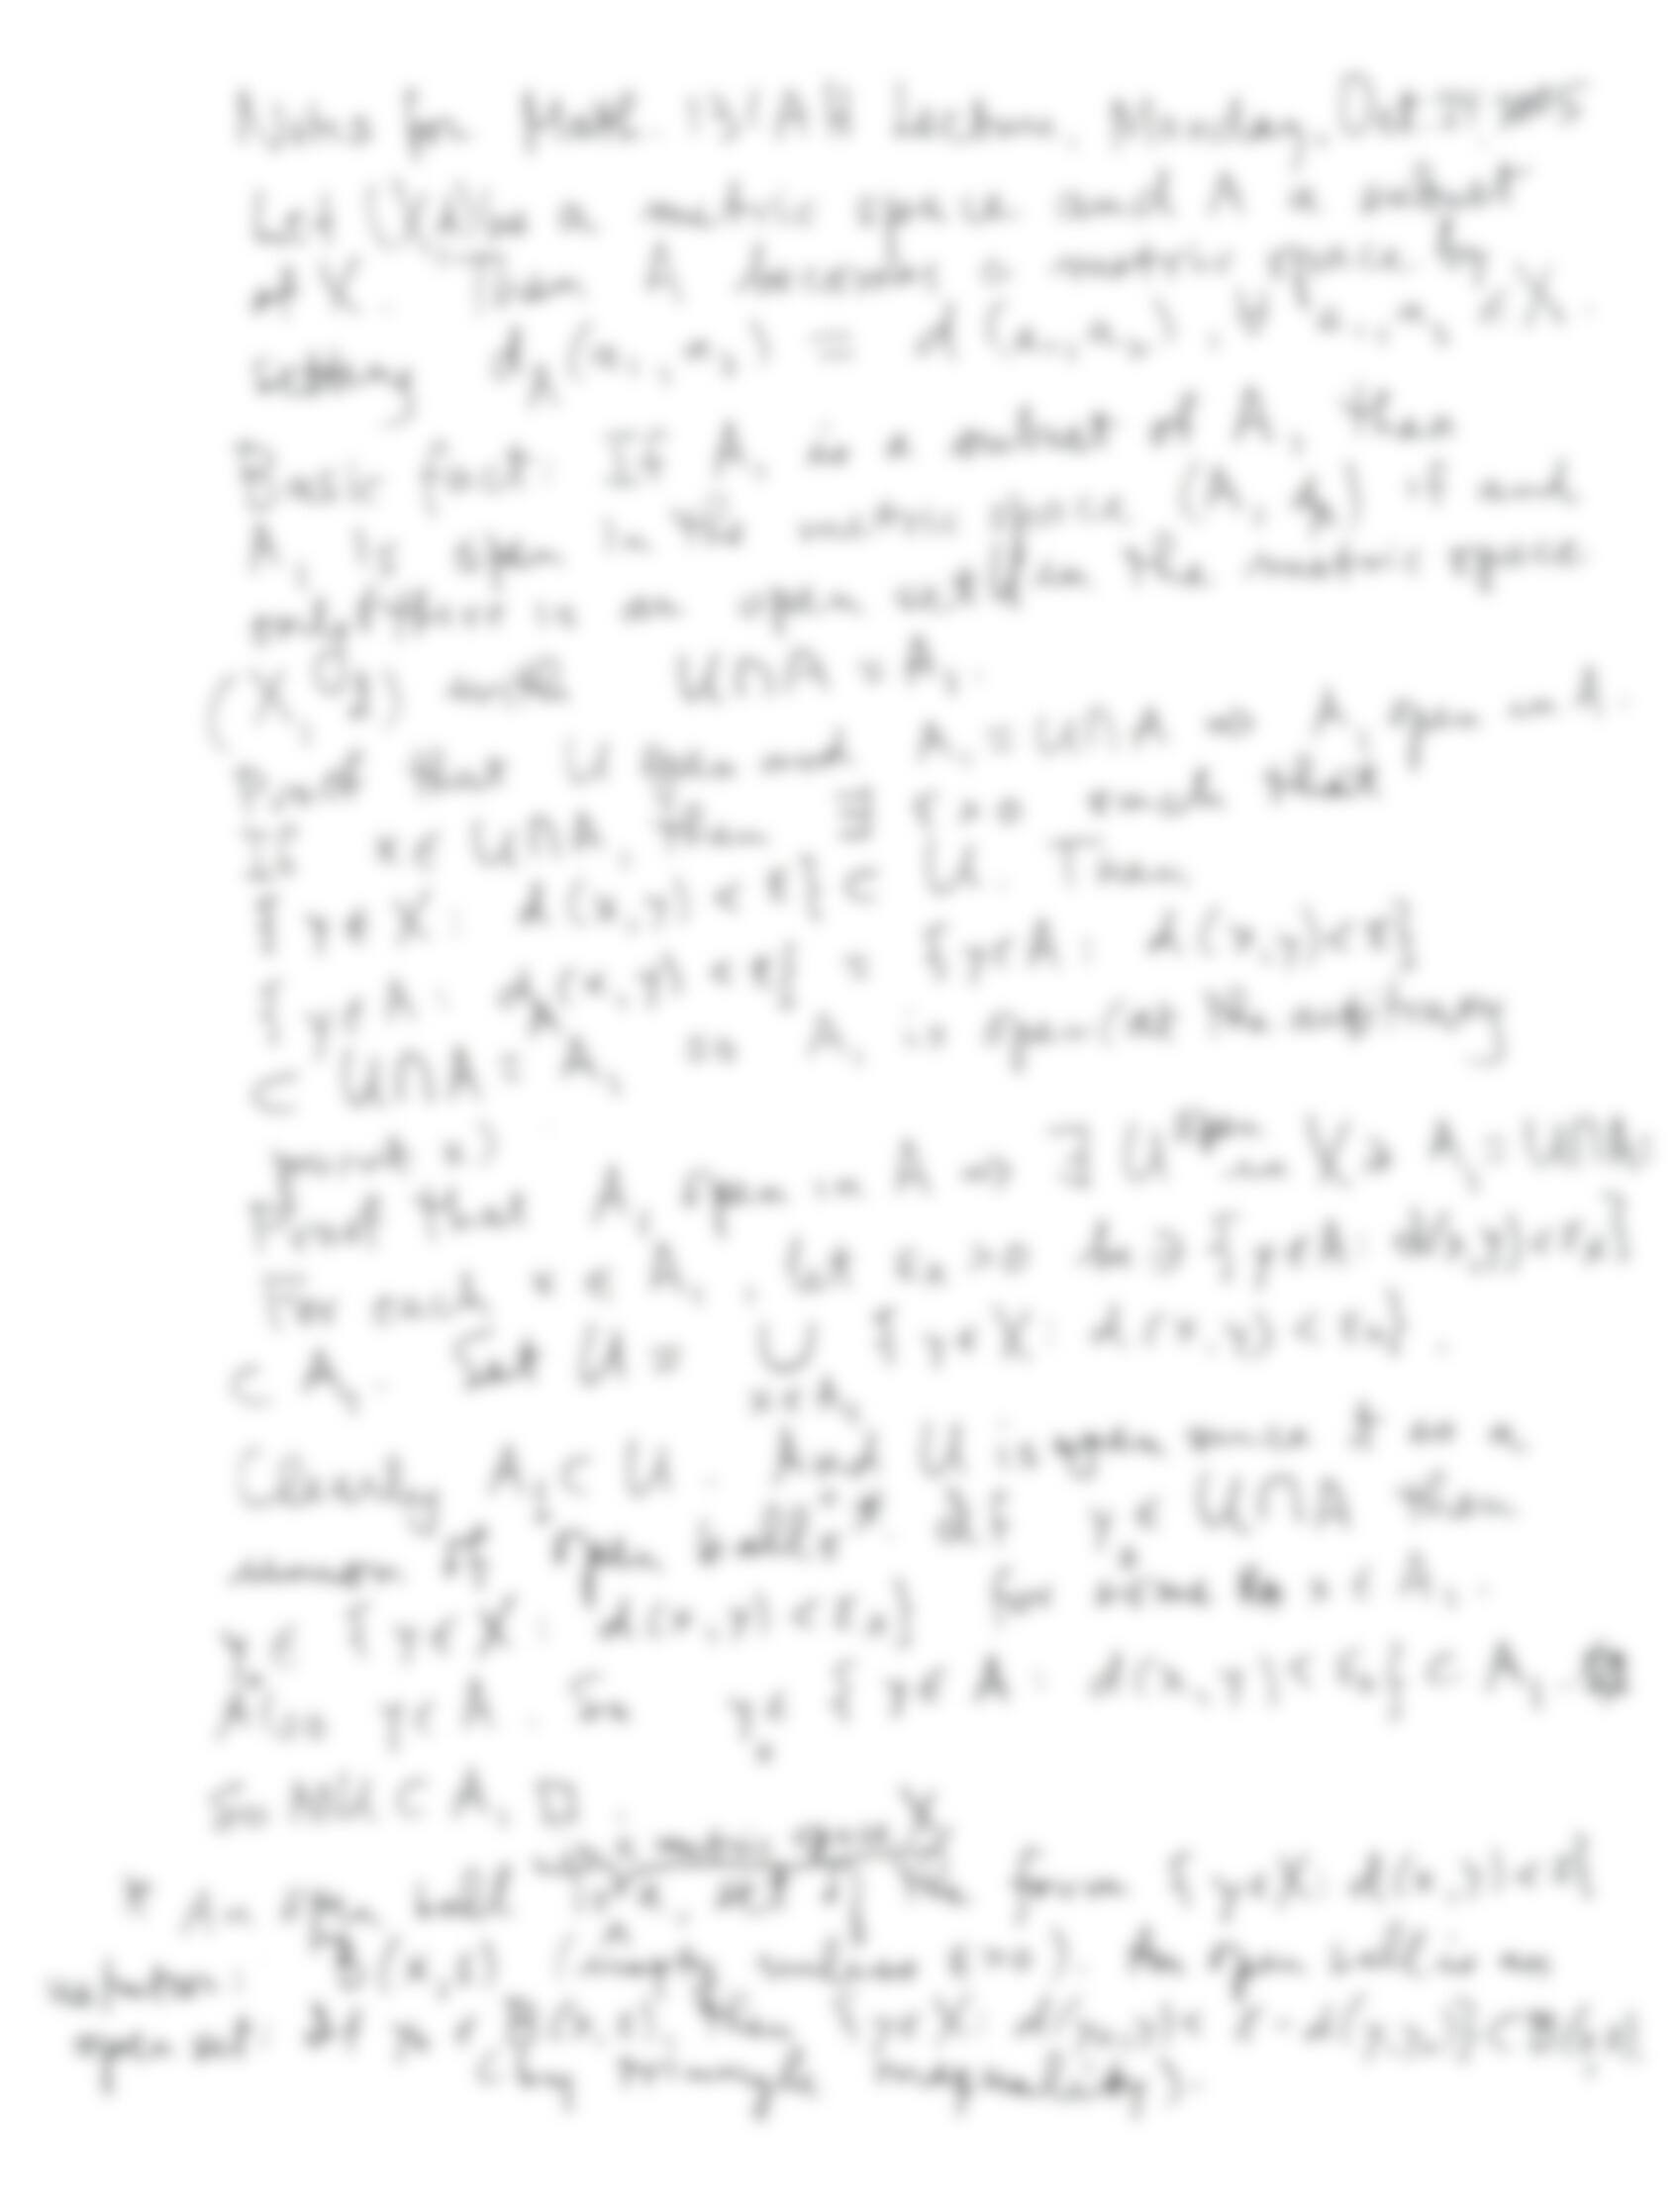 Notes for Math 131AH Lecture, Monday, Oct
Let (X,d) be a metric space and A a subset
of X. Then A becomes a metric space by
setting d_A(a₁,a₂) = d(a₁,a₂), ∀ a₁,a₂ ∈ X.
Basic fact: If A₁ is a subset of A, then
A₁ is open in the metric space (A, d_A) if and
only if there is an open set U in the metric space
(X, d) with U∩A = A₁.
Proof that U open and A₁ = U∩A ⇒ A₁ open in A.
If x ∈ U∩A, then ∃ ε>0 such that
{y∈X: d(x,y) < ε} ⊂ U. Then
{y∈A: d_A(x,y) < ε} = {y∈A: d(x,y)<ε}
⊂ U∩A = A₁ so A₁ is open (at the arbitrary
point x)
Proof that A₁ open in A ⇒ ∃ U open in X ∋ A₁ = U∩A:
For each x ∈ A₁, let εₓ >0 be ∋ {y∈A: d(x,y)<εₓ}
⊂ A₁. Set U = ∪ {y∈X: d(x,y) < εₓ}.
x∈A₁
Clearly A₁ ⊂ U. And U is open since it is a
union of open balls*. If y₀ ∈ U∩A then
y₀ ∈ {y∈X: d(x,y) < εₓ} for some x ∈ A₁.
Also y ∈ A. So y₀ ∈ {y∈A: d(x,y) < εₓ} ⊂ A₁.
So A∩U ⊂ A₁ □
in a metric space X
* An open ball is a set of the form {y∈X: d(x,y)<ε}
notation: B(x,ε) (empty unless ε>0). An open ball is an
open set: If y₀ ∈ B(x,ε), then {y∈X: d(y₀,y) < ε - d(x,y₀)} ⊂ B(x,ε)
(by triangle inequality).